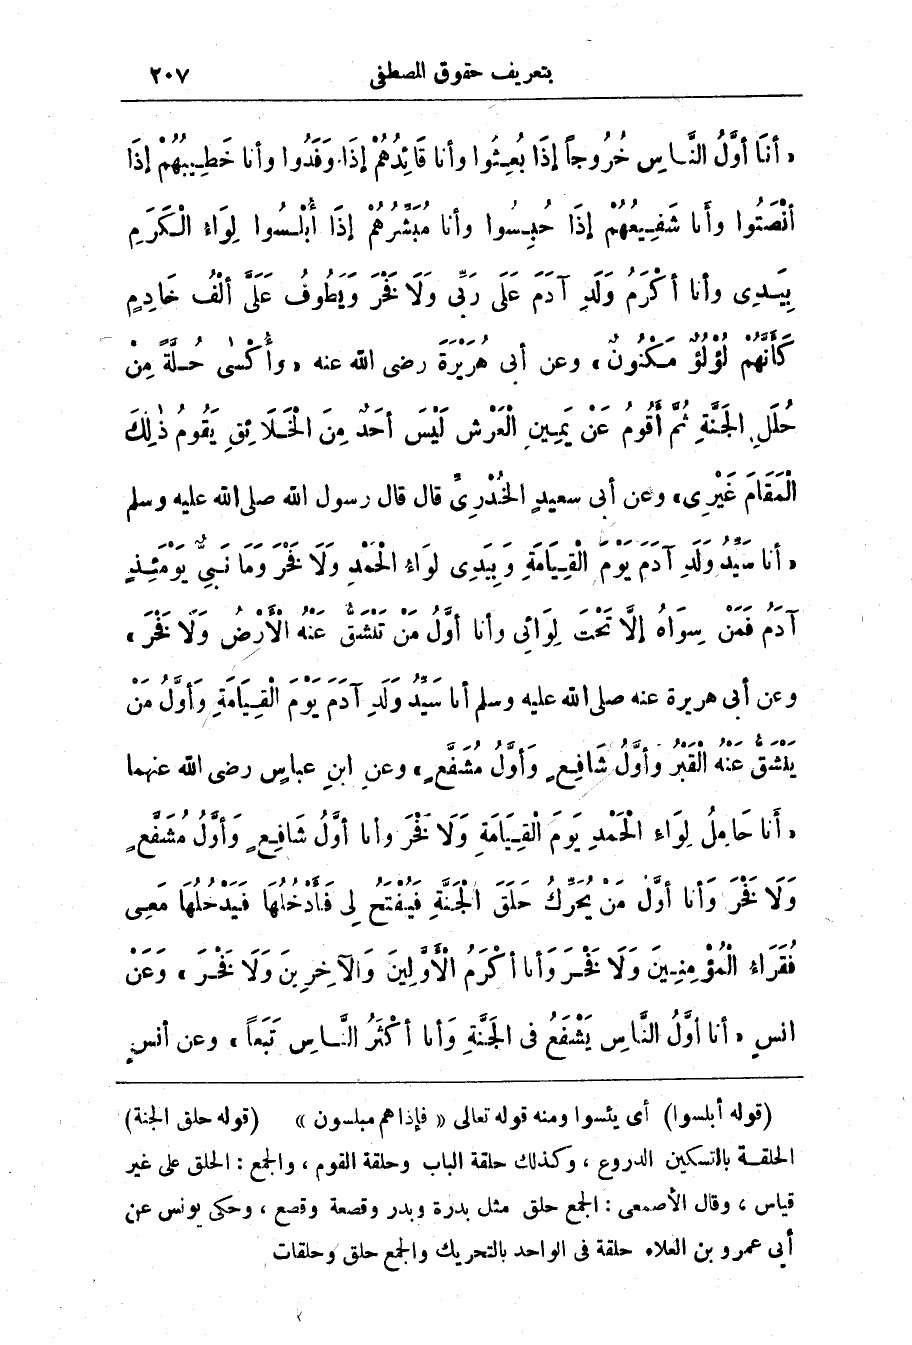 بتعريف حقوق المصطفى ٢٠٧
« أَنَا أَوَّلُ النَّاسِ خُرُوجاً إِذَا بُعِثُوا وأنا قَائِدُهُمْ إِذَا وَفَدُوا وأنا خَطِيبُهُمْ إِذَا
أَنْصَتُوا وَأَنا شَفِيعُهُمْ إِذَا حُبِسُوا وأنا مُبَشِّرُهُمْ إِذَا أُبْلِسُوا لِوَاءُ الْكَرَمِ
بِيَدِى وأنا أَكْرَمُ وَلَدِ آدَمَ عَلَى رَبِّى وَلَا فَخْرَ وَيَطُوفُ عَلَىَّ أَلْفُ خَادِمٍ
كَأَنَّهُمْ لُؤْلُؤٌ مَكْنُونٌ » وعن أبى هُرَيْرَةَ رضى الله عنه « وَأُكْسٰى حُلَّةً مِنْ
حُلَلِ الجَنَّةِ ثُمَّ أَقُومُ عَنْ يَمِينِ الْعَرْشِ لَيْسَ أَحَدٌ مِنَ الْخَلَائِقِ يَقُومُ ذٰلِكَ
الْمَقَامَ غَيْرِى» وعن أبى سعيدٍ الخُدْرِىِّ قال قال رسول الله صلى الله عليه وسلم
« أنا سَيِّدُ وَلَدِ آدَمَ يَوْمَ الْقِيَامَةِ وَبِيَدِى لِوَاءُ الْحَمْدِ وَلَا فَخْرَ وَمَا نَبِىٌّ يَوْمَئِذٍ
آدَمُ فَمَنْ سِوَاهُ إِلَّا تَحْتَ لِوَائِى وأنا أَوَّلُ مَنْ تَنْشَقُّ عَنْهُ الْأَرْضُ وَلَا فَخْرَ »
وعن أبى هريرة عنه صلى الله عليه وسلم أنا سَيِّدُ وَلَدِ آدَمَ يَوْمَ الْقِيَامَةِ وَأَوَّلُ مَنْ
يَنْشَقُّ عَنْهُ الْقَبْرُ وَأَوَّلُ شَافِعٍ وَأَوَّلُ مُشَفَّعٍ» وعن ابنِ عباسٍ رضى الله عنهما
« أَنا حَامِلُ لِوَاءِ الْحَمْدِ يَوْمَ الْقِيَامَةِ وَلَا فَخْرَ وأنا أَوَّلُ شَافِعٍ وَأَوَّلُ مُشَفَّعٍ
وَلَا فَخْرَ وَأَنا أَوَّلُ مَنْ يُحَرِّكُ حَلَقَ الْجَنَّةِ فَيُفْتَحُ لِى فَأَدْخُلُهَا فَيَدْخُلُهَا مَعِى
فُقَرَاءُ الْمُؤْمِنِينَ وَلَا فَخْرَ وَأَنا أَكْرَمُ الْأَوَّلِينَ وَالْآخِرِينَ وَلَا فَخْرَ » وَعَنْ
انس « أنا أَوَّلُ النَّاسِ يَشْفَعُ فى الجَنَّةِ وَأَنا أَكْثَرُ النَّاسِ تَبَعاً » وعن أنسٍ
(قوله أبلسوا) أى يئسوا ومنه قوله تعالى « فإذا هم مبلسون » (قوله حلق الجنة)
الحلقة بالتسكين الدروع ، وكذلك حلقة الباب وحلقة القوم ، والجمع : الحلق على غير
قياس ، وقال الأصمعى : الجمع حلق مثل بدرة وبدر وقصعة وقصع ، وحكى يونس عن
أبى عمرو بن العلاء حلقة فى الواحد بالتحريك والجمع حلق وحلقات